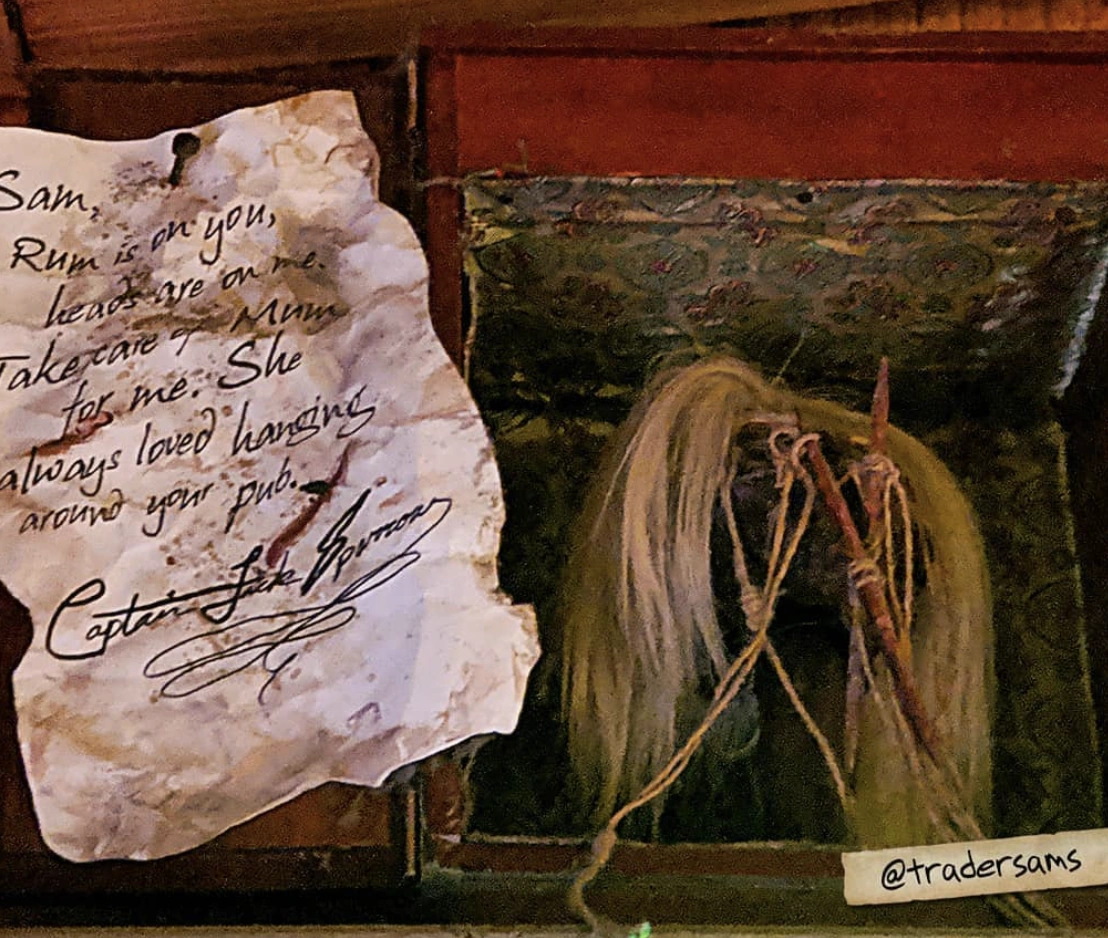 Sam,
Rum is on you,
heads are on me.
Take care of Mum
for me. She
always loved hanging
around your pub.
Captain Jack Sparrow
@tradersams